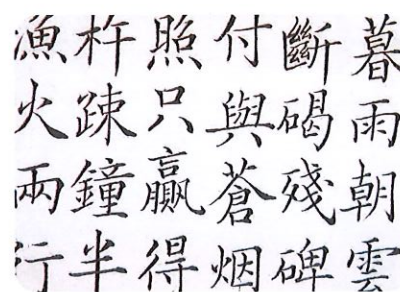 暮雨朝雲
斷碣殘碑
付與蒼烟
照只贏得
杵踈鐘半
漁火兩行